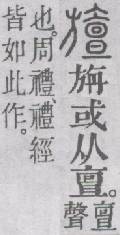 旜旃或从亶。亶聲
也。周禮、禮經
皆如此作。